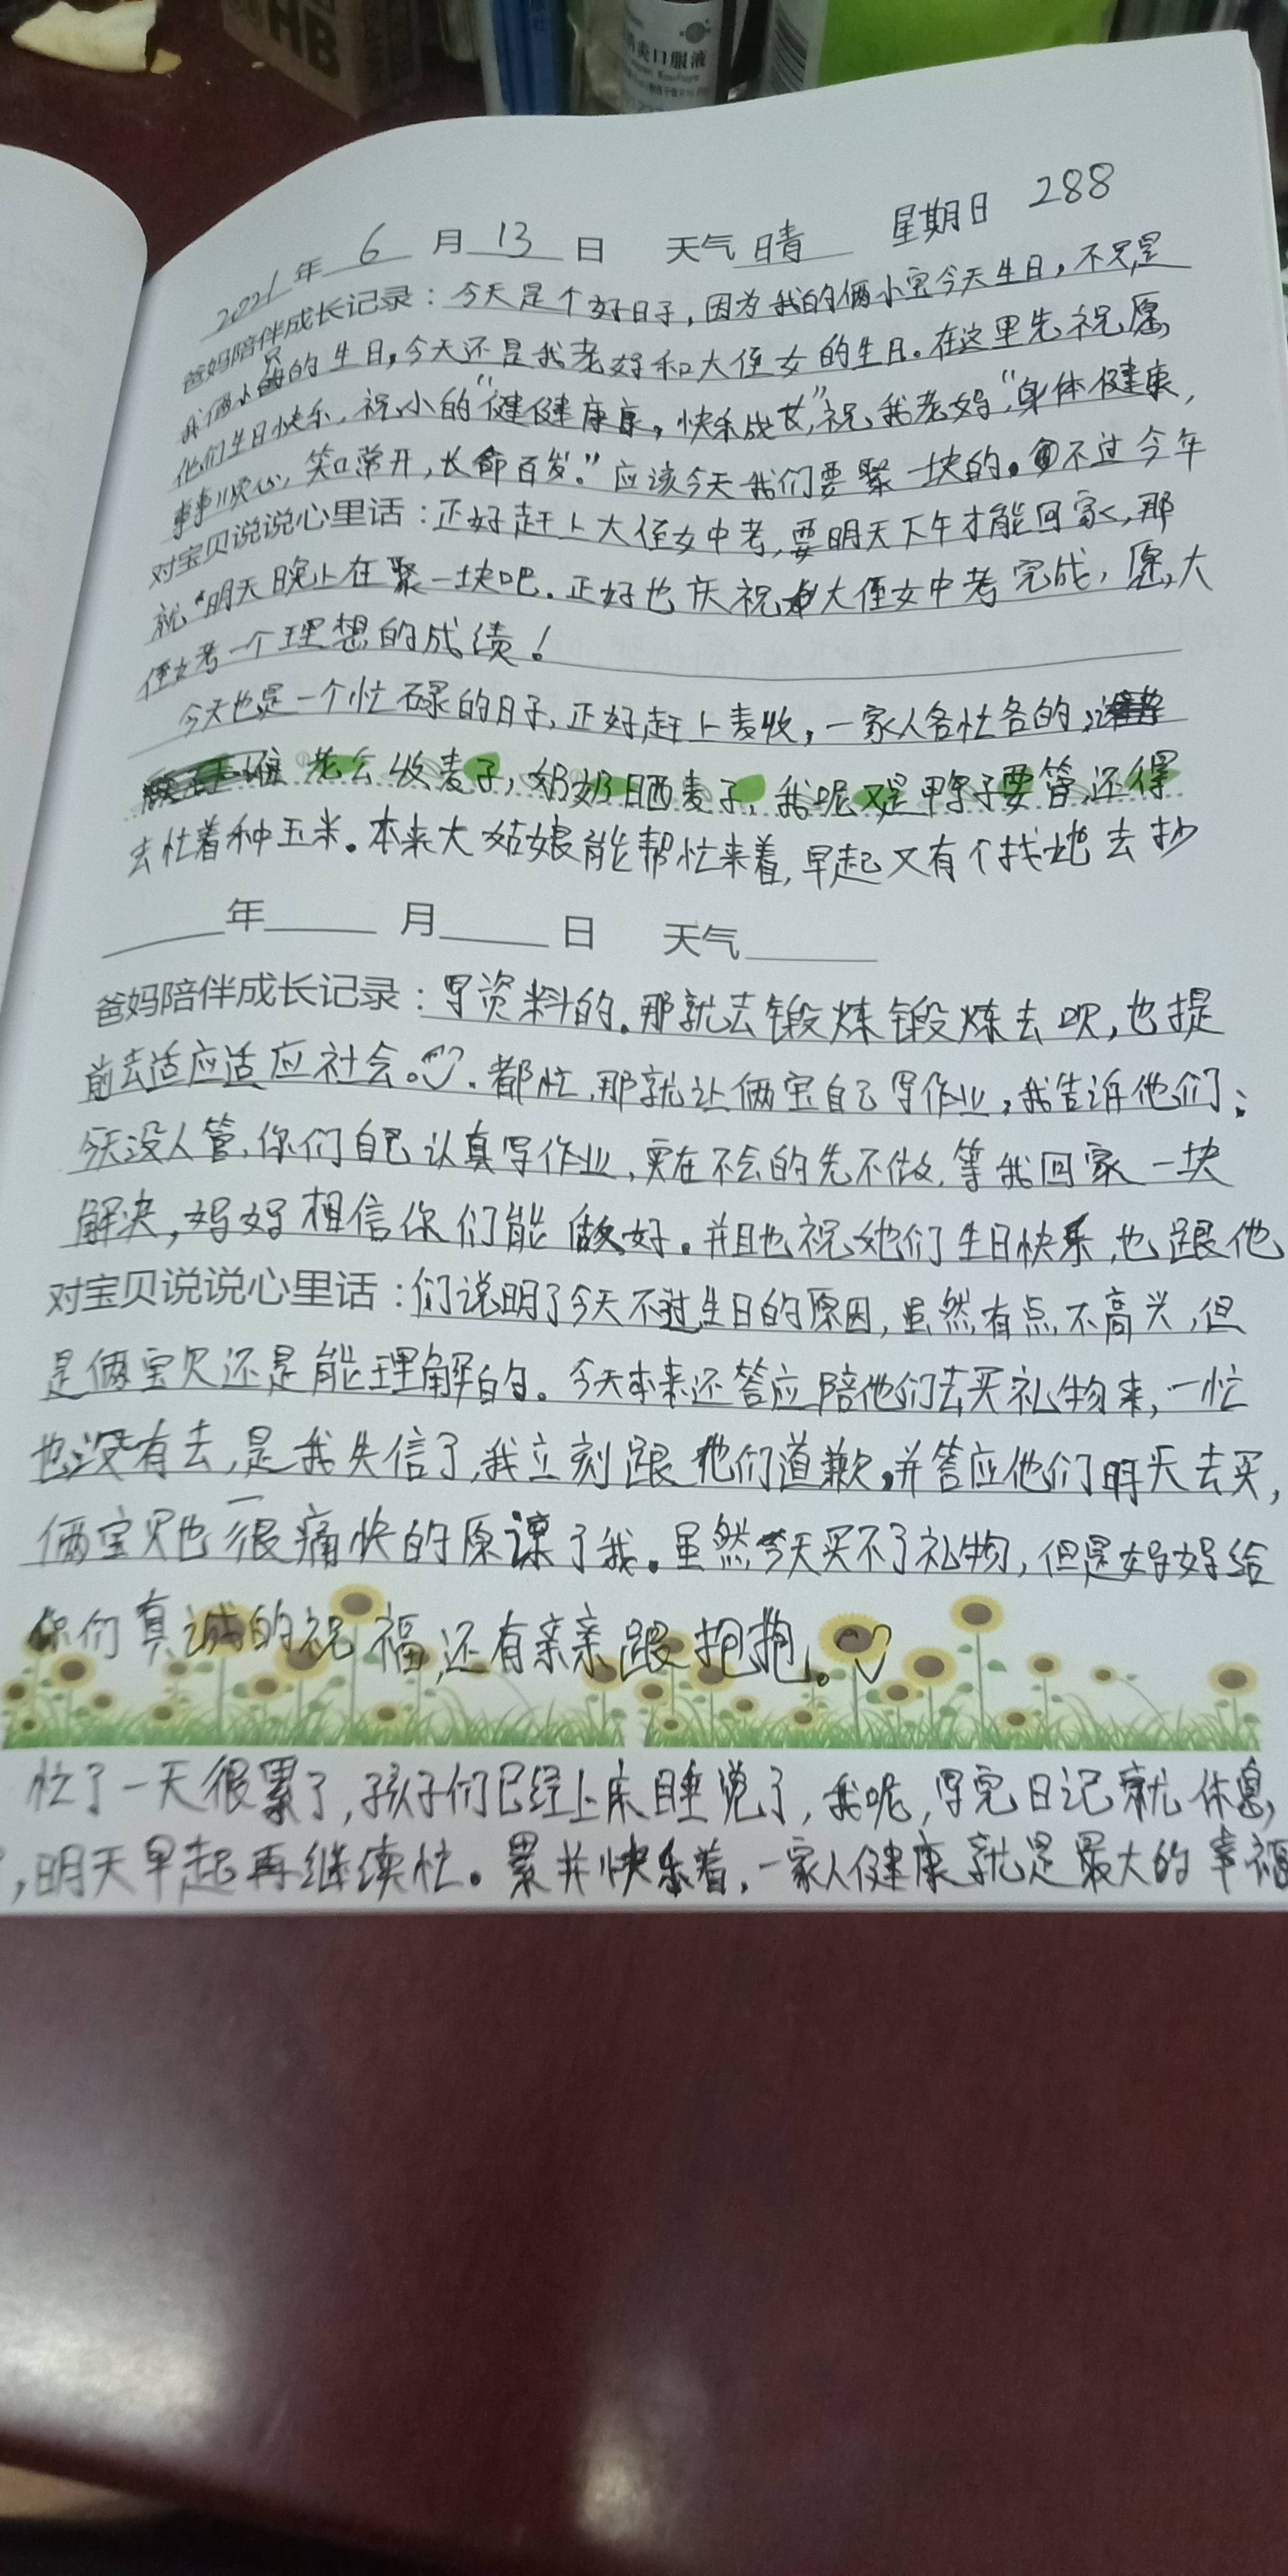 HB
炎口服液
2021年 6 月 13 日 天气 晴 星期日 288
爸妈陪伴成长记录：今天是个好日子，因为我的俩小宝今天生日，不只是
我俩小的生日，今天还是我老妈和大侄女的生日。在这里先祝愿
他们生日快乐，祝小的“健健康康，快乐成长”，祝我老妈“身体健康，
事事顺心，笑口常开，长命百岁。”应该今天我们要聚一块的。不过今年
对宝贝说说心里话：正好赶上大侄女中考，要明天下午才能回家，那
就明天晚上在聚一块吧。正好也庆祝大侄女中考完成，愿大
侄女考一个理想的成绩！
今天也是一个忙碌的日子，正好赶上麦收，一家人各忙各的，
老公收麦子，奶奶晒麦子，我呢又是鸭子要管，还得
去忙着种玉米。本来大姑娘能帮忙来着，早起又有个找她去抄
年 月 日 天气
爸妈陪伴成长记录：写资料的。那就去锻炼锻炼去呗，也提
前去适应适应社会。都忙，那就让俩宝自己写作业，我告诉他们：
今天没人管，你们自己认真写作业，实在不会的先不做，等我回家一块
解决，妈妈相信你们能做好。并且也祝她们生日快乐，也跟他
对宝贝说说心里话：们说明了今天不过生日的原因，虽然有点不高兴，但
是俩宝贝还是能理解的。今天本来还答应陪他们去买礼物来，一忙
也没有去，是我失信了，我立刻跟他们道歉，并答应他们明天去买，
俩宝贝也很痛快的原谅了我。虽然今天买不了礼物，但是妈妈给
你们真诚的祝福，还有亲亲跟抱抱。
忙了一天很累了，孩子们已经上床睡觉了，我呢，写完日记就休息，
，明天早起再继续忙。累并快乐着，一家人健康就是最大的幸福